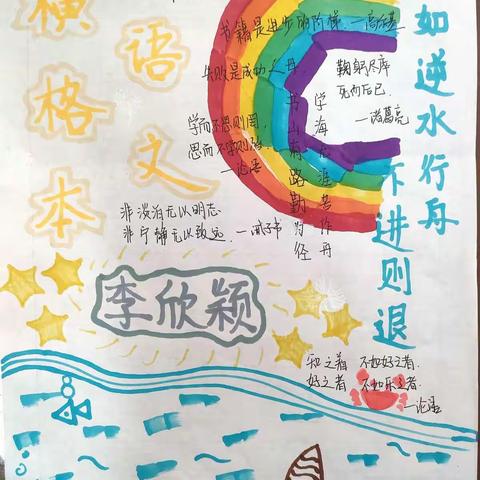 横格本
语文
书籍是进步的阶梯.—高尔基
失败是成功之母.
鞠躬尽瘁
死而后已.
—诸葛亮
学而不思则罔,
思而不学则殆.
—论语
书山有路勤为径
学海无涯苦作舟
非淡泊无以明志
非宁静无以致远.—诫子书
如逆水行舟
不进则退
李欣颖
知之者 不如好之者.
好之者 不如乐之者.
—论语